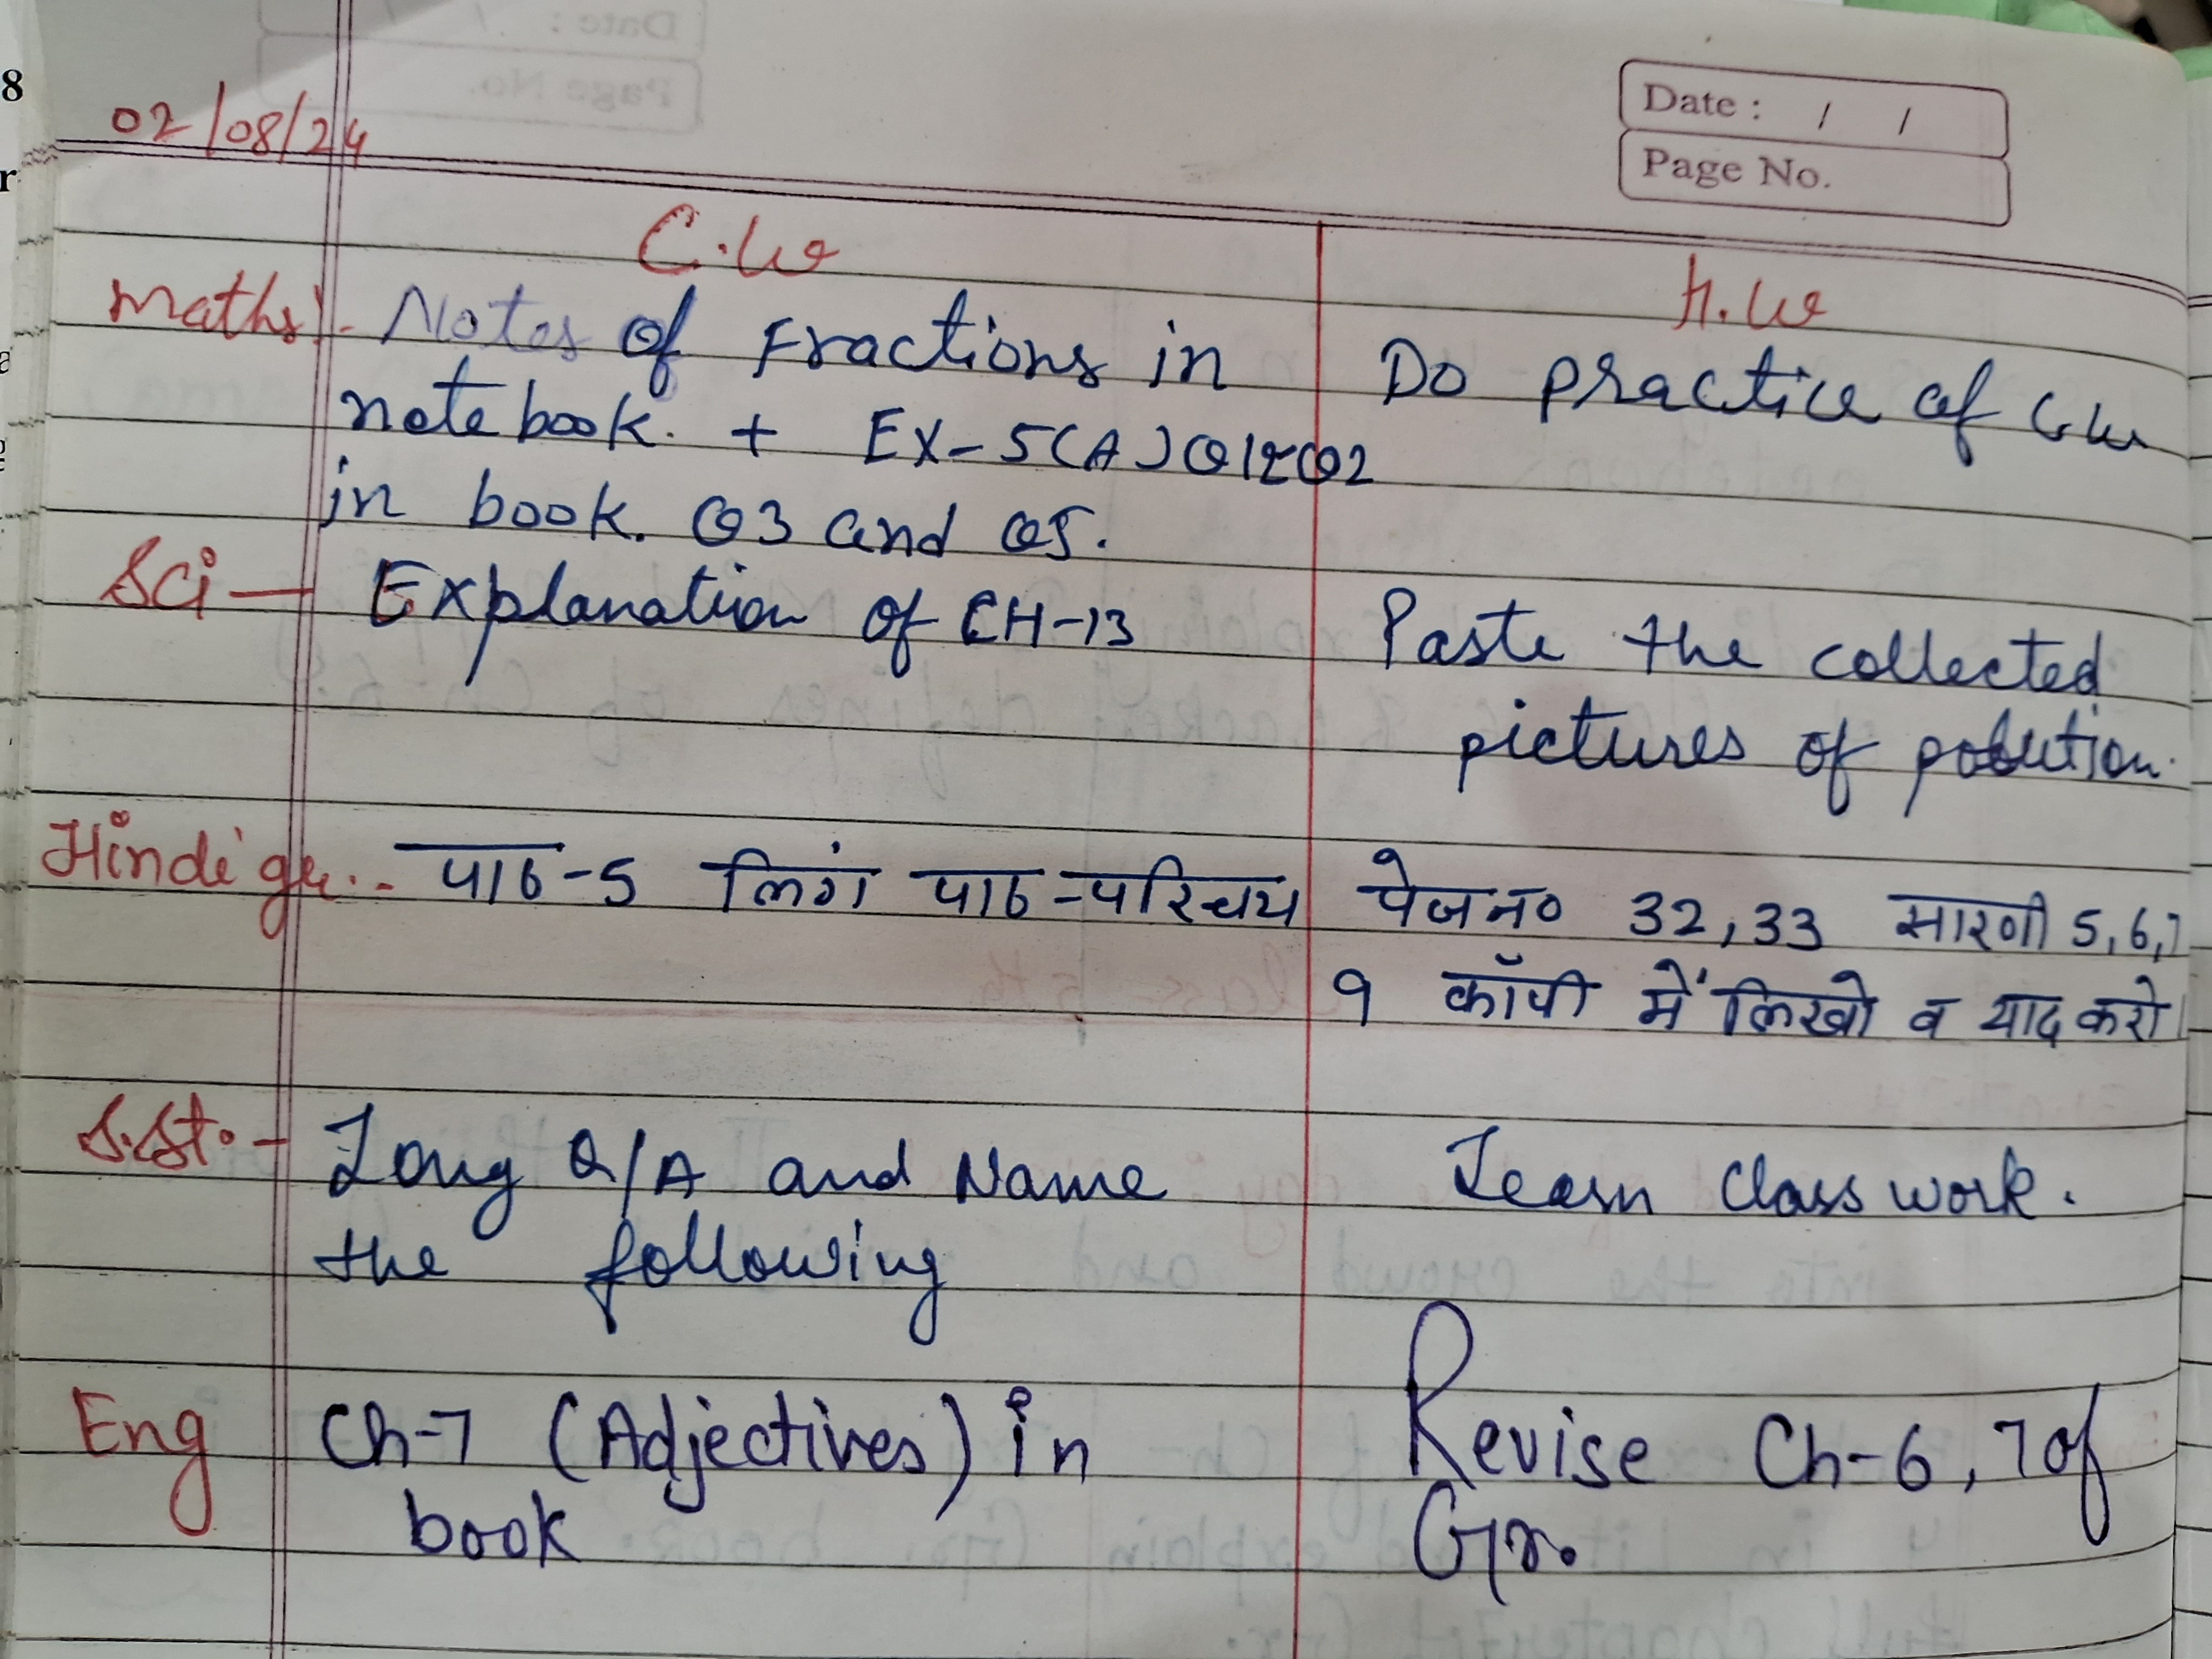 8
r
Date : / /
Page No.
02/08/24
C.W
H.W
Maths:- Notes of Fractions in
notebook. + EX-5(A) Q1 & Q2
in book. Q3 and Q5.
Do practice of C.W
Sci — Explanation of CH-13
Paste the collected
pictures of pollution.
Hindi gr.- पाठ-5 लिंग पाठ-परिचय
पेज न० 32, 33 सारणी 5, 6, 7
9 कॉपी में लिखो व याद करो।
S.St.- Long Q/A and Name
the following
Learn Class work.
Eng Ch-7 (Adjectives) in
book
Revise Ch-6, 7 of
Gr.